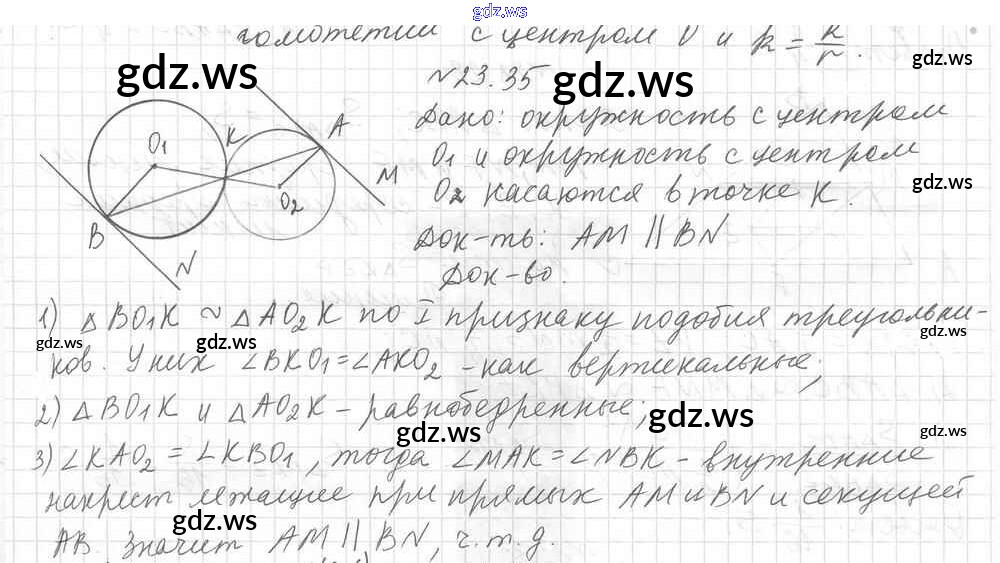 gdz.ws
гомотетии с центром О и k = R/r.
gdz.ws
N 23.35
gdz.ws
gdz.ws
Дано: окружность с центром
O₁ и окружность с центром
O₂ касаются в точке K.
gdz.ws
O₁ K A M
O₂
B N
Док-ть: AM || BN
Док-во.
1) △BO₁K ~ △AO₂K по I признаку подобия треугольни-
gdz.ws gdz.ws gdz.ws
ков. У них ∠BKO₁ = ∠AKO₂ - как вертикальные;
2) △BO₁K и △AO₂K - равнобедренные;
gdz.ws
gdz.ws gdz.ws
3) ∠KAO₂ = ∠KBO₁, тогда ∠MAK = ∠NBK - внутренние
накрест лежащие при прямых AM и BN и секущей
gdz.ws
AB. Значит AM || BN, ч.т.д.